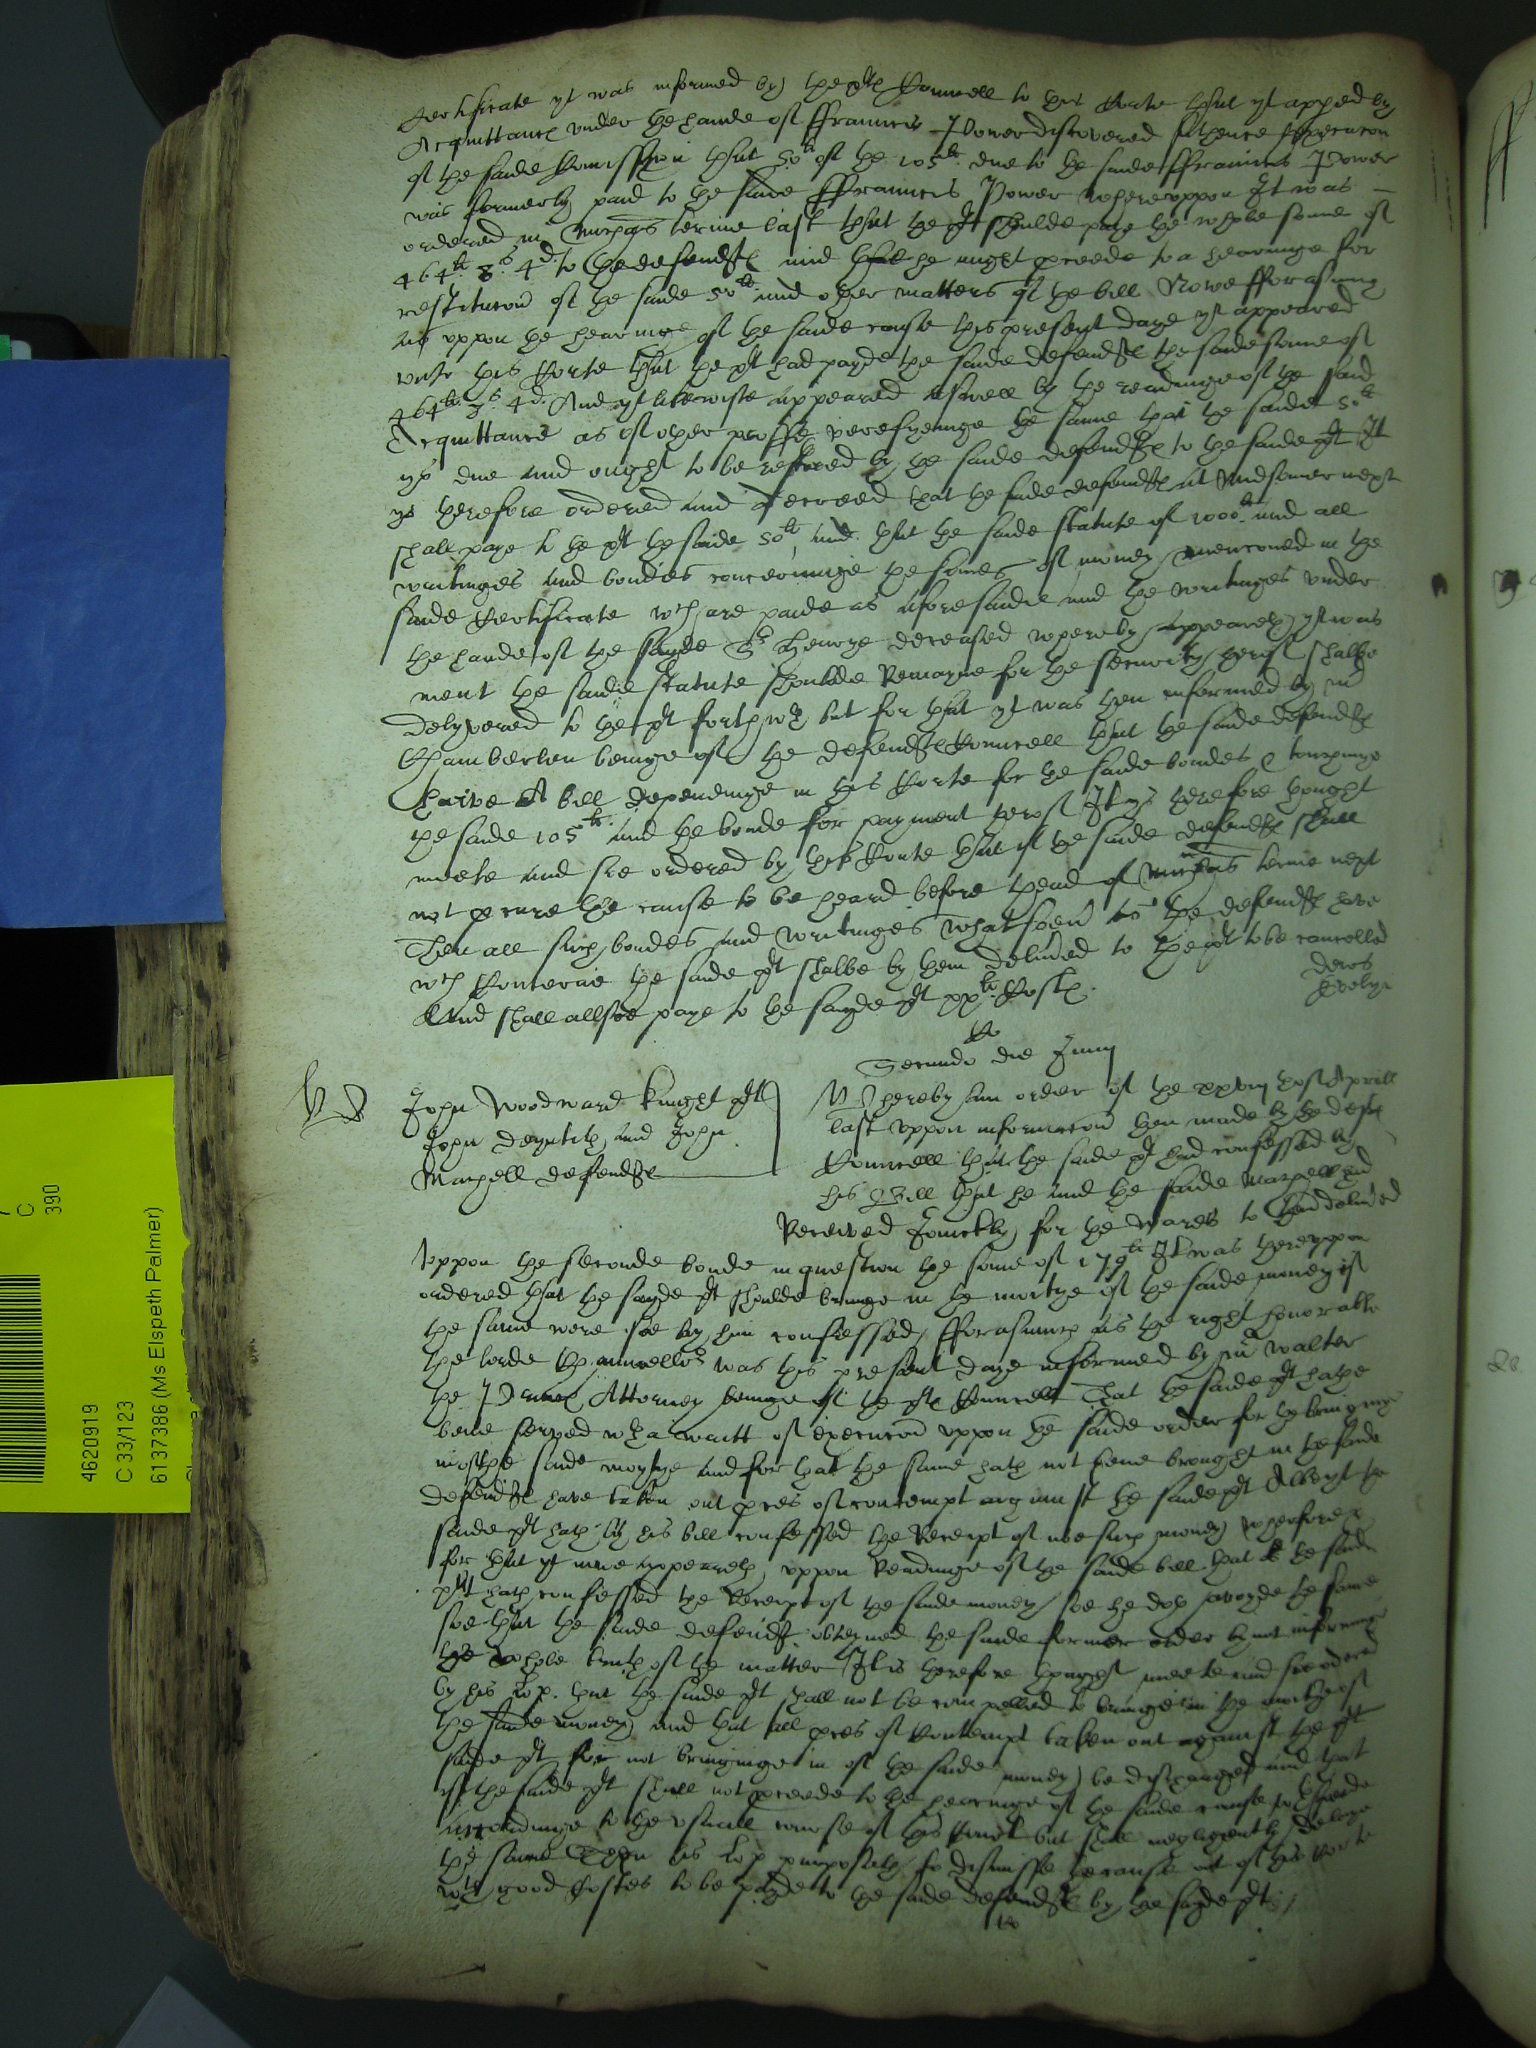 Certificate yt was informed by the plts Councell to this Corte that yt appered by
Acquittance under the hande of Ffrauncis Power discovered sithence thexecucon
of the saide Comission that 50li of the 105li due to the saide Ffrauncis Power
was formerly paid to the saide Ffrauncis Power whereuppon It was
ordered in Michas terme last that the plt shoulde paye the whole some of
464li 3s 4d to the defendtes and that he might procede to a hearinge for
restitucon of the saide 50li and other matters of the bill Nowe fforasmuch
as uppon the hearinge of the saide cause this present daye yt appeared
unto this Corte that the plt had payde the saide defendtes the saide some of
464li 3s 4d And yt likewise appeared aswell by the readinge of the said
Acquittance as of other proffe verefyeinge the same that the saide 50li
ys due and ought to be restored by the saide defendtes to the saide plt It
ys therefore ordered and decreed that the saide defendtes at Midsomer next
shall paye to the plt the saide 50li and that the saide statute of 1000li and all
writinges and bondes concerninge the somes of money mencioned in the
saide Certificate wch are paide as aforesaide and the writinges under
the hande of the sayde Sr Henrye deceased whereby appeareth yt was
ment the saide statute shoulde Remayne for the securitye therof shalbe
delyvered to the plt forthwth but for that yt was then informed by mr
Chamberlen beinge of the defendtes Councell that the saide defendtes
have A bill dependinge in this Corte for the saide bondes touchinge
the saide 105li and the bonde for payment therof It ys therefore thought
meete and soe ordered by this Corte that if the saide defendtes shall
not procure the cause to be heard before thend of Michas terme next
Then all such bondes and writinges whatsoever wch the defendtes have
wch Concerne the saide plt shalbe by them delivered to the plt to be cancelled
And shall allsoe paye to the sayde plt xxli Costes.
Secundo die Junij
John Woodward knight plt
John and John
Marshell defendtes
Whereby an order of the xxviijth of Aprill
last uppon informacon then made by the deftes
Councell that the saide plt had confessed by
his Bill that he and the saide Marshell had
Received Joinctly for the wares to them delivered
Uppon the seconde bonde in question the some of 179li It was thereuppon
ordered that the sayde plt shoulde bringe in the moitye of the saide money if
the same were soe by him confessed, fforasmuch as the right honorable
the lorde Chauncellor was this present daye informed by mr walter
the Attorney beinge of the plts Councell That the saide plt hathe
bene served wth a writt of execucon uppon the saide order for the bringinge
in of the saide moytye and for that the same hath not bene brought in the saide
defendtes have taken out proces of contempt against the saide plt Albeyt the
saide plt hath by his bill confessed the Receipt of noe such money wherefore
for that yt nowe appeareth uppon Readinge of the saide bill that as the saide
plt hath confessed the Receipt of the saide money soe he doth avoyde the same
soe that the saide defendtes obteyned the saide former order by not informinge
the whole truth of the matter It is therefore thought meete and soe ordered
by his Lop. that the saide plt shall not be compelled to bringe in the moitye of
the saide money and that all proces of Contempt taken out against the
saide plt for not bringinge in of the saide money be dischardged and that
yf the saide plt shall not procede to the hearinge of the saide cause
accordinge to the usuall course of this Court but shall negligently delaye
the same Then his Lop purposeth to dismisse the cause out of this Corte
wth good Costes to be payde to the saide defendtes by the sayde plt
C
390
4620919
C 33/123
6137386 (Ms Elspeth Palmer)